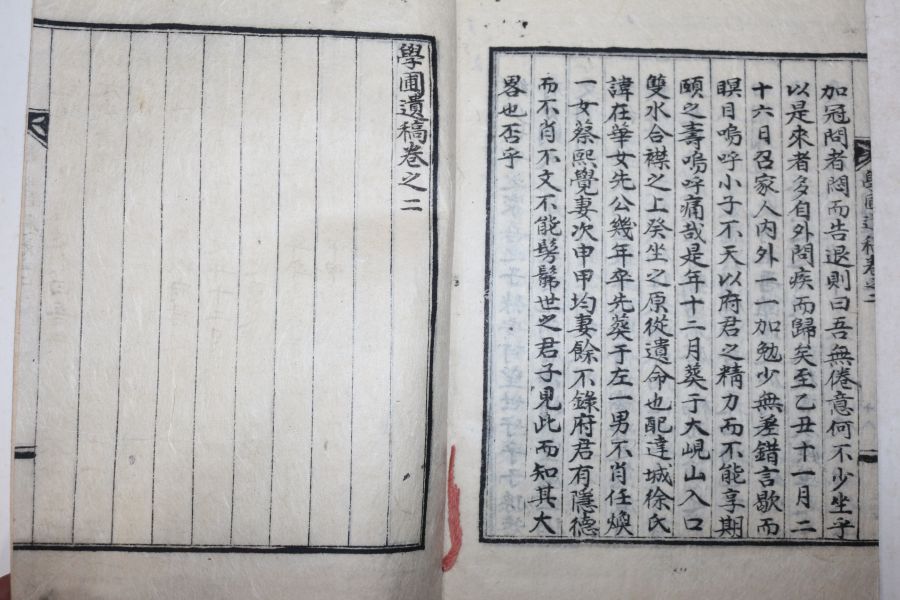 加冠問者悶而告退則曰吾無倦意何不少坐乎
以是來者多自外問疾而歸矣至乙丑十一月二
十六日召家人內外一一加勉少無差錯言歇而
瞑目嗚呼小子不天以府君之精力而不能享期
頤之壽嗚呼痛哉是年十二月葬于大峴山入口
雙水合襟之上癸坐之原從遺命也配達城徐氏
諱在華女先公幾年卒先葬于左一男不肖任煥
一女蔡熙覺妻次申甲均妻餘不錄府君有隱德
而不肖不文不能髣髴世之君子見此而知其大
畧也否乎
學圃遺稿卷之二